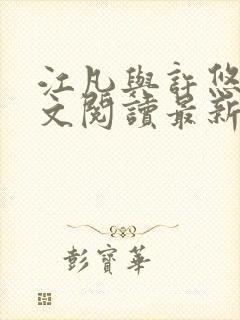 江凡與許悠
文閱讀最新
彭寶華